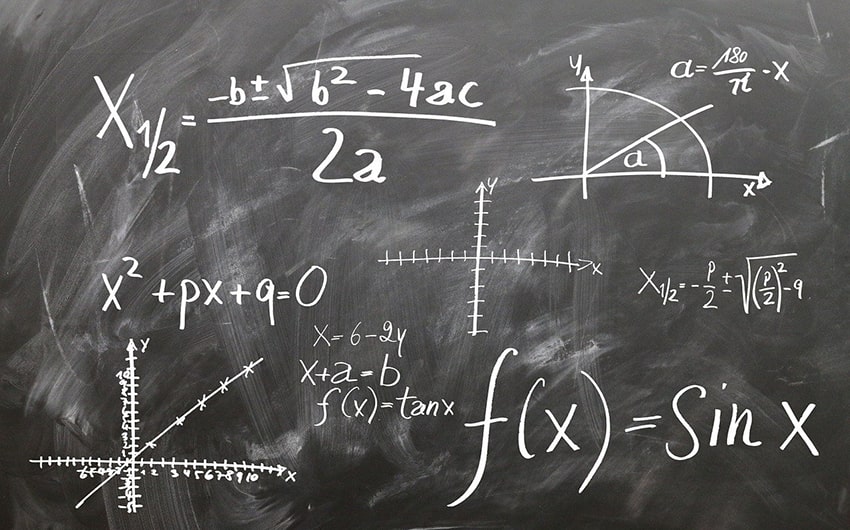 X1/2 = -b ± √b² - 4ac / 2a
y
a = 180/π · X
a
x
y
x
x² + px + q = 0
X1/2 = - p/2 ± √(p/2)² - q
X = 6 - 2y
x + a = b
f(x) = tanx
f(x) = Sin x
y
x
1 2 3 4 5 6 7 8 9 10